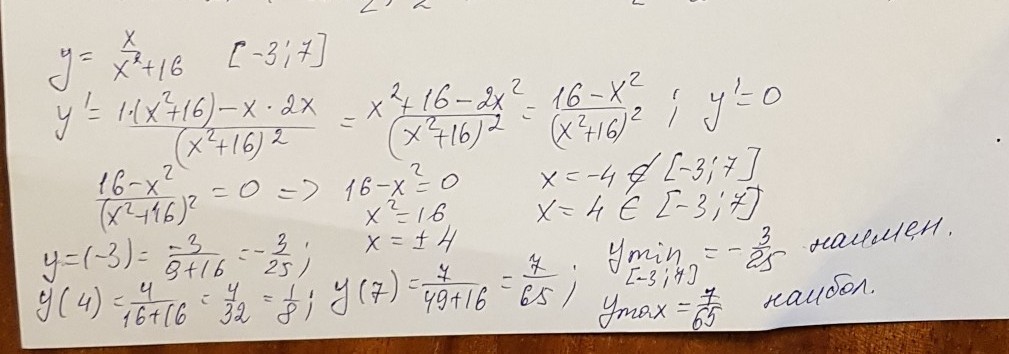 y = x/(x²+16) [-3;7]
y' = (1·(x²+16)-x·2x)/(x²+16)² = (x²+16-2x²)/(x²+16)² = (16-x²)/(x²+16)² ; y'=0
(16-x²)/(x²+16)² = 0 => 16-x²=0 x=-4 ∉ [-3;7]
x²=16 x=4 ∈ [-3;7]
x=±4
y=(-3)= -3/(9+16) = -3/25; y min [-3;7] = -3/25 наимен.
y(4)= 4/(16+16) = 4/32 = 1/8; y(7)= 7/(49+16) = 7/65; y max = 7/65 наибол.